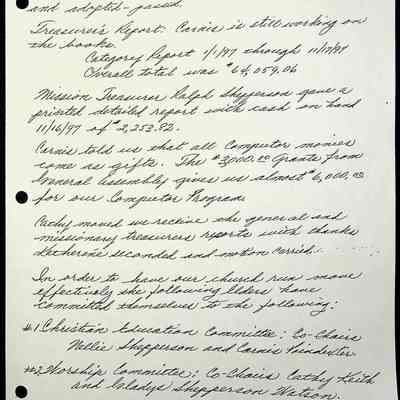 and adopted - passed.
Treasurer's Report: Carnie is still working on
the books.
Category Report 1/1/97 through 11/17/97
Overall total was $64,059.06
Mission Treasurer Ralph Shepperson gave a
printed detailed report with cash on hand
11/16/97 of $2,253.82.
Carnie told us that all Computor monies
come as gifts. The $3,000.00 Grante from
General Assembly gives us almost $6,000.00
for our Computor Program.
Cathy moved we receive the general and
missionary treasurers reports with thanks
Katherine seconded and motion carried.
In order to have our church run more
effectively the following Elders have
committed themselves to the following:
#1 Christian Education Committee: Co-Chairs
Nellie Shepperson and Carnie Poindexter
#2 Worship Committee: Co-Chairs Cathy Keith
and Gladys Shepperson Watson.